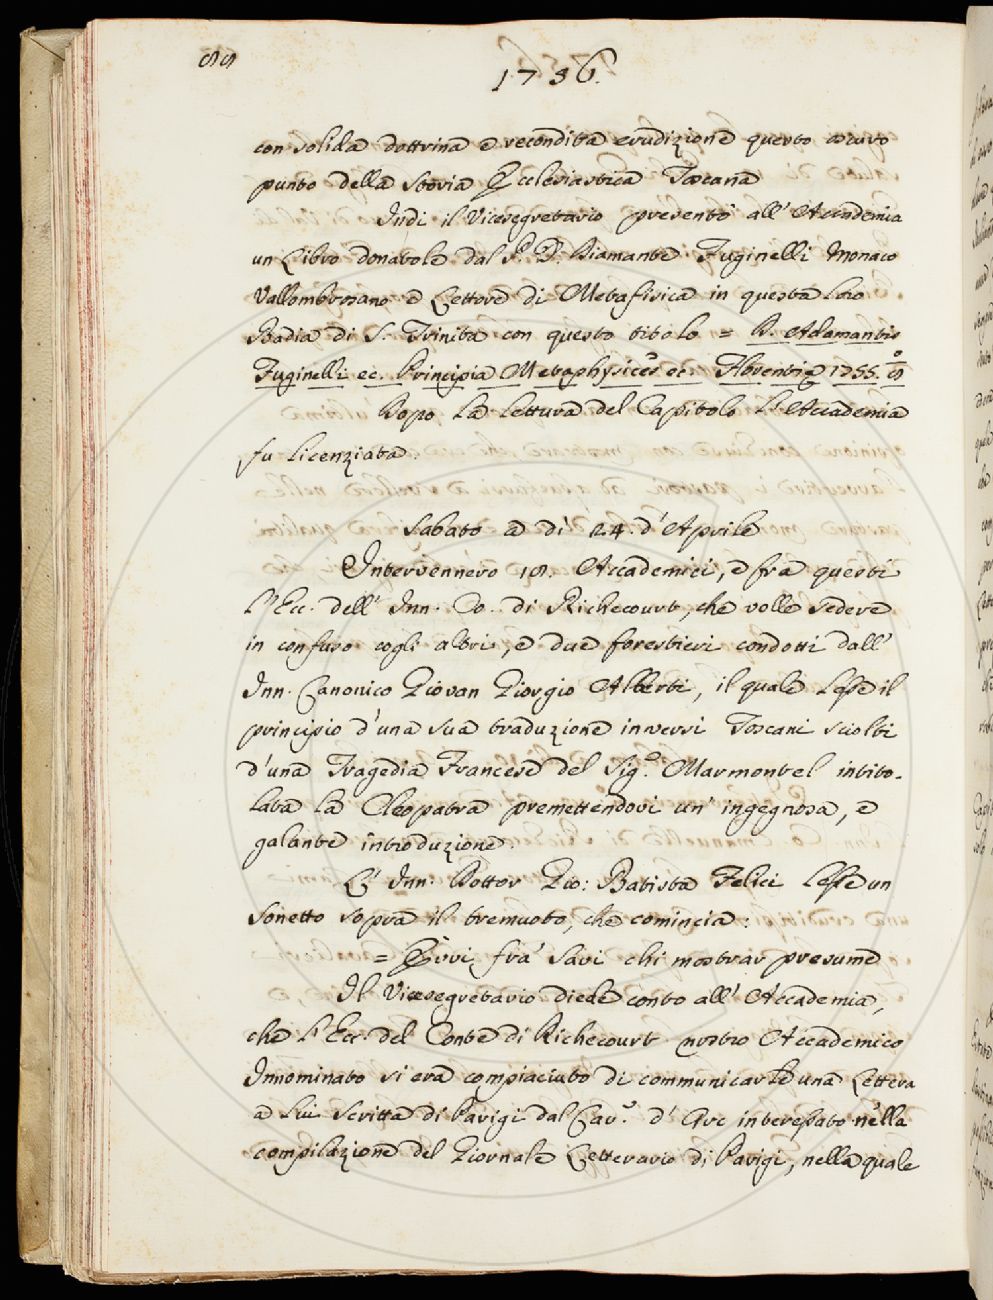 88
1756.
con solida dottrina e recondita erudizione questo oscuro
punto della Storia Ecclesiastica Toscana
Indi il Vicesegretario presentò all' Accademia
un Libro donatole dal P. D. Diamante Fuginelli Monaco
Vallombrosano e Lettore di Metafisica in questa loro
Badia di S. Trinita con questo titolo = D. Adamantis
Fuginelli ec. Principia Metaphysices ec. Florentiæ 1755. in 8º
Dopo la lettura del Capitolo l' Accademia
fu licenziata.
Sabato a dì 24. d' Aprile
Intervennero 18. Accademici, e fra questi
l' Ecc. dell' Inn. Co. di Richecourt, che volle sedere
in confuso cogli altri, e due forestieri condotti dall'
Inn. Canonico Giovan Giorgio Alberti, il quale lesse il
principio d' una sua traduzione in versi Toscani sciolti
d' una Tragedia Francese del Sigº. Marmontel intito-
lata la Cleopatra premettendovi un' ingegnosa, e
galante introduzione.
L' Inn. Dottor Gio: Batista Felici lesse un
Sonetto sopra il tremuoto, che comincia:
= Evvi frà Savi chi mostrar presume
Il Vicesegretario diede conto all' Accademia,
che l' Ecc. del Conte di Richecourt nostro Accademico
Innominato si era compiaciuto di communicarle una Lettera
a lui scritta di Parigi dal Cavº. d' Arc interessato nella
compilazione del Giornale Letterario di Parigi, nella quale